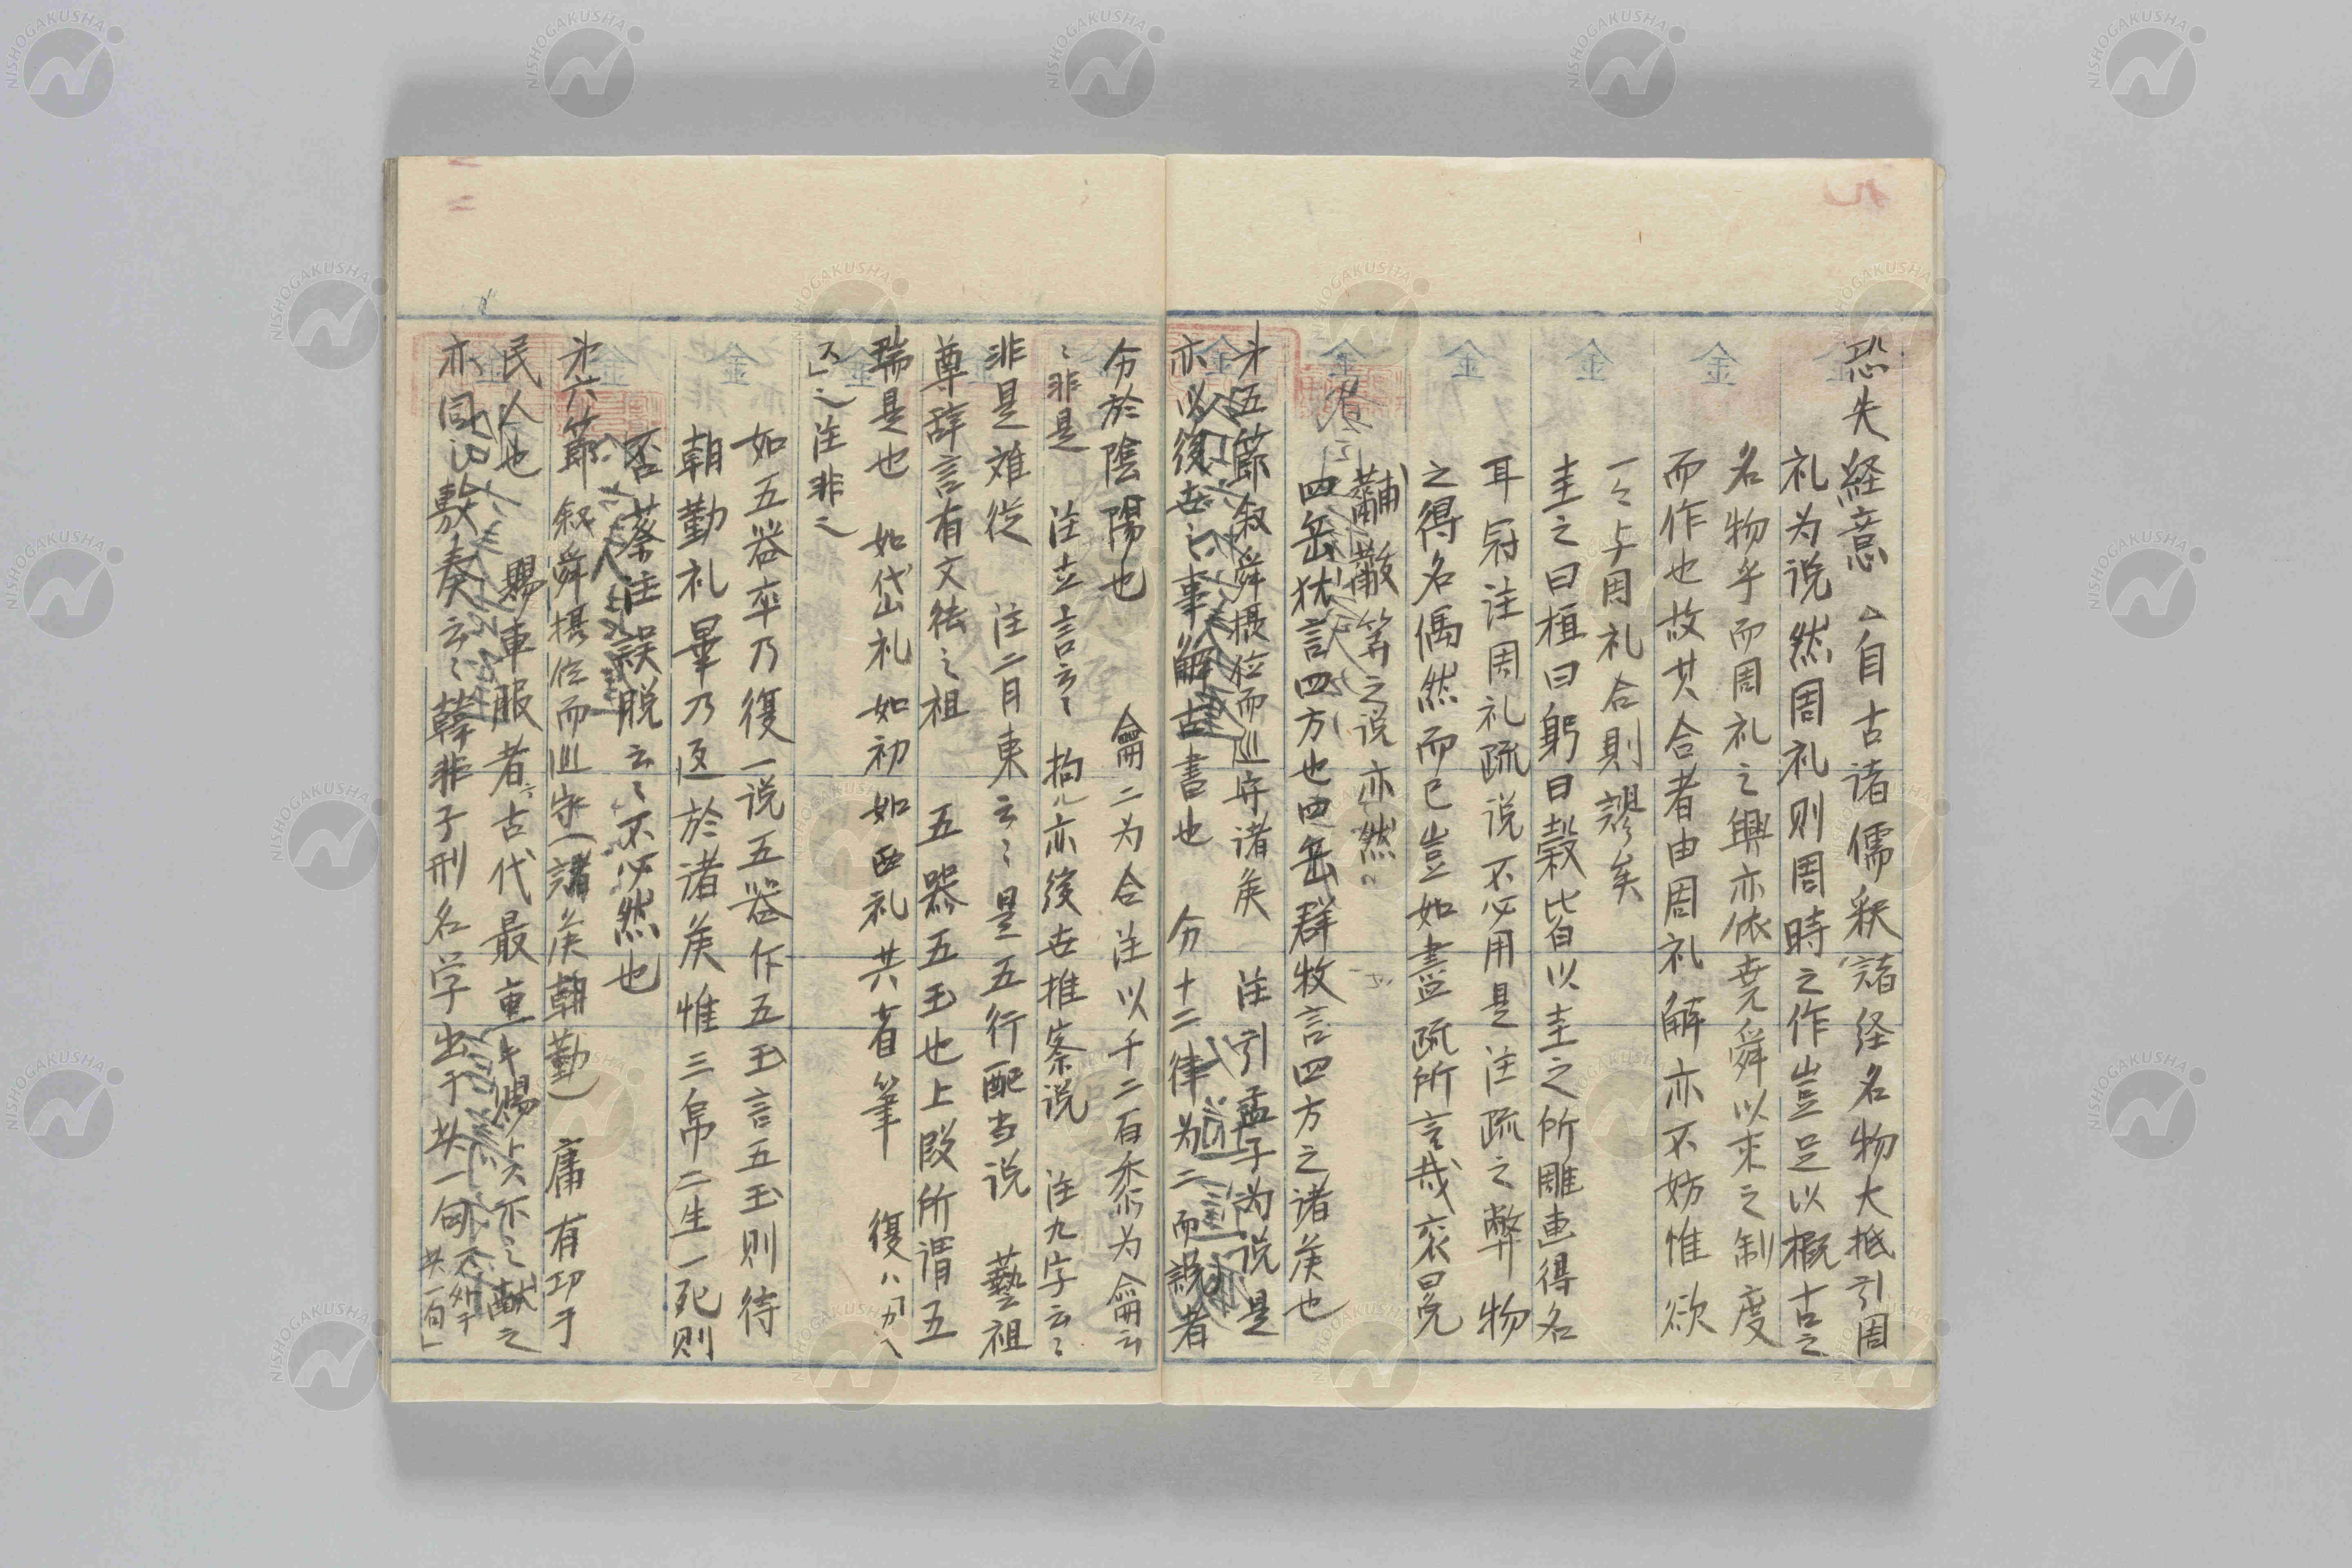 恐失経意 △自古诸儒釈諸経名物大抵引周
礼为说然周礼则周時之作豈足以概古之
名物乎而周礼之興亦依堯舜以来之制度
而作也故其合者由周礼解亦不妨惟欲
一〻与周礼合則謬矣
圭之曰桓曰躬曰穀皆以圭之所雕画得名
耳冠注周礼疏说不必用是注疏之弊物
之得名偶然而已豈如盡疏所言哉袞冕
黼黻等之说亦然
四岳状言四方也四岳群牧言四方之诸矦也
㐧五節叙舜摂位而巡守诸矦 注引孟子为说是
亦以後世之事解古書也 分十二律为二而説者
分於陰陽也 龠二为合注以千二百黍为龠云
〻非是 注立言云〻 拘〻亦後世推案说 注九字云〻
非是難従 注二月東云〻是五行配当说 藝祖
尊辞言有文祛之祖 五器五玉也上段所谓五
瑞是也 如岱礼如初如西礼共省筆 復ハ「カヘ
ス」之注非之
如五器卒乃復一说五器作五玉言五玉则待
朝勤礼畢乃返於诸矦惟三帛二生一死则
否蔡注誤脱云〻不必然也
㐧六節叙舜摂位而巡守(諸矦朝勤) 庸有功于
民人也 賜車服者古代最重
亦同 敷奏云〻韓非子刑名学出于共一句
NISHOGAKUSHA